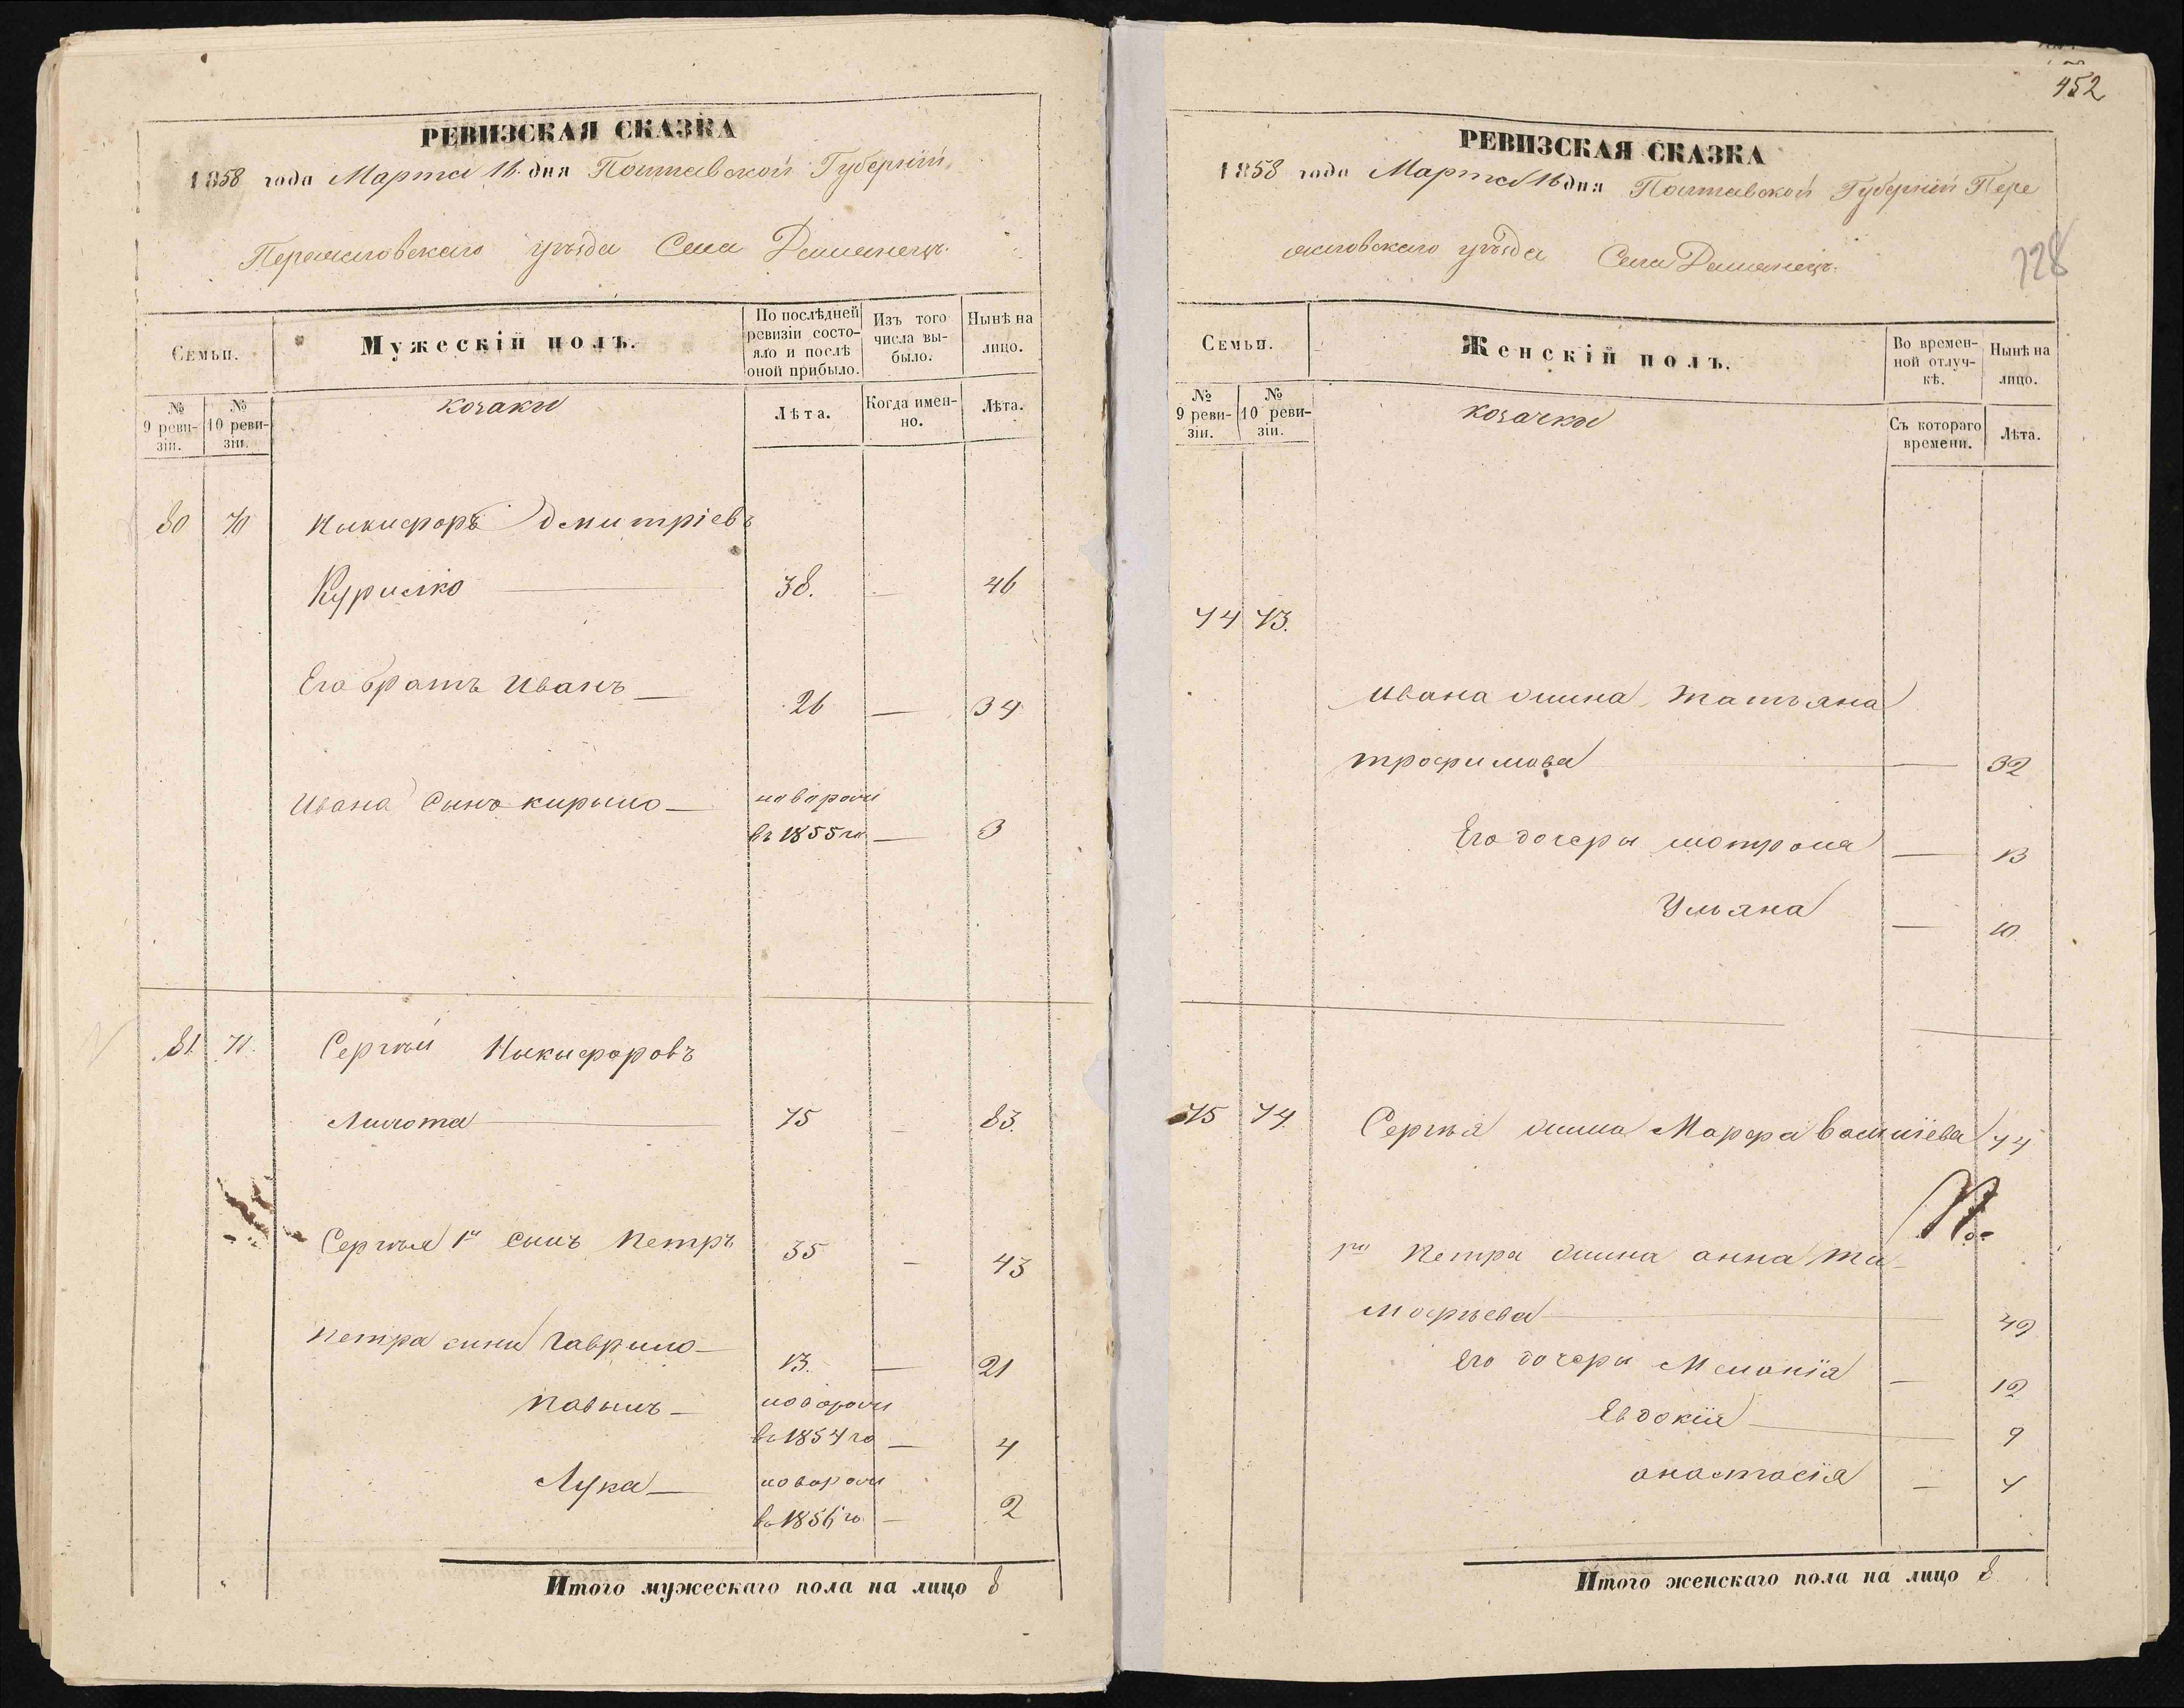 РЕВИЗСКАЯ СКАЗКА
1858 года Марта 16 дня Полтавской Губерніи
Переяславскаго уѣзда Села
Семьи.
Мужескій полъ.
По послѣдней ревизіи состояло и послѣ оной прибыло.
Изъ того числа выбыло.
Нынѣ на лицо.
№ 9 ревизіи.
№ 10 ревизіи.
козаки
Лѣта.
Когда именно.
Лѣта.
80 70 Никифоръ Дмитріевъ
Курилко 38. — 46
Его братъ Иванъ — 26 — 34
Ивана сынъ кирило — новорож
въ 1855 го — 3
81. 71. Сергѣй Никифоровъ
75 — 83.
Сергѣя 1й сынъ Петръ 35 — 43
Петра сини Гаврило — 13. — 21
новорож
въ 1854 го — 4
Лука — новорож
въ 1856 го — 2
Итого мужескаго пола на лицо 8
452
РЕВИЗСКАЯ СКАЗКА
1858 года Марта 16 дня Полтавской Губерніи Пере
яславскаго уѣзда Села
128
Семьи.
Женскій полъ.
Во временной отлучкѣ.
Нынѣ на лицо.
№ 9 ревизіи.
№ 10 ревизіи.
козачки
Съ котораго времени.
Лѣта.
74 73.
Ивана жина Татьяна
трофимова — 32
Его дочеры мотрона — 13
Ульяна — 10
75 74 Сергѣя жина Марфа Василіева 44
Петра жина анна Ти
мофѣева 42
Его дочеры Меланія — 12
Евдокія — 9
анастасія — 4
Итого женскаго пола на лицо 8